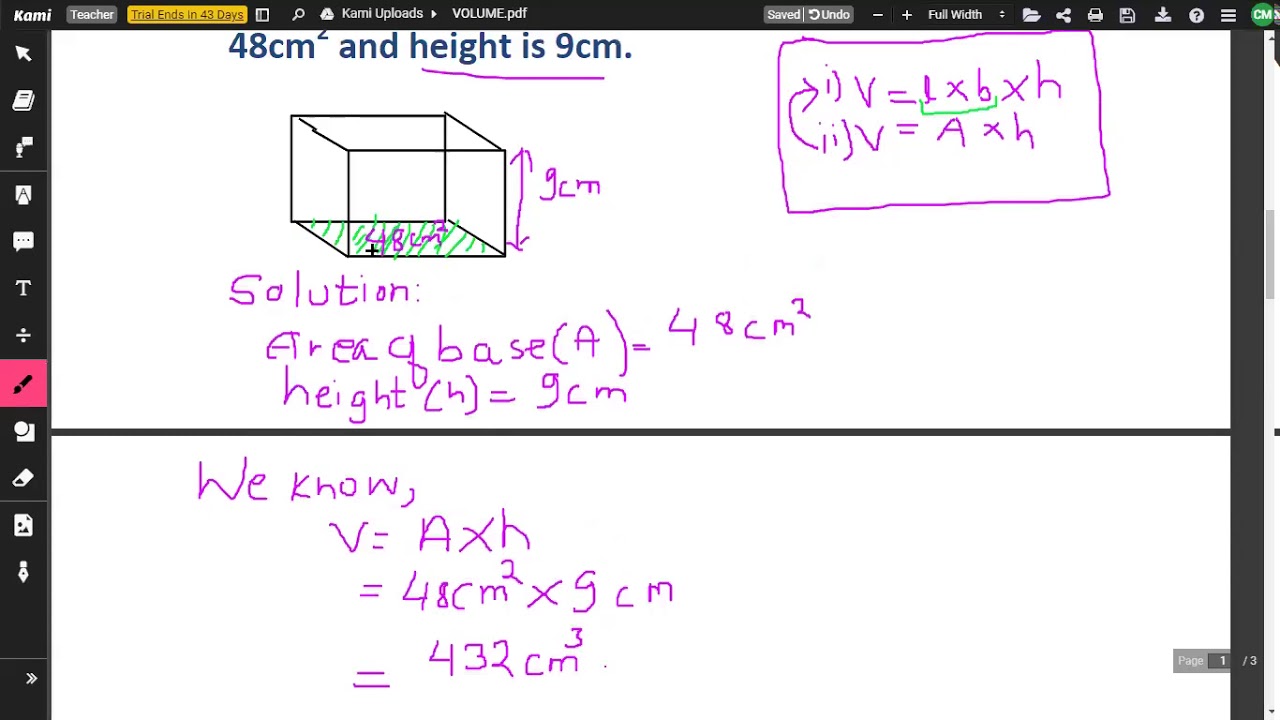 Kami Teacher Trial Ends In 43 Days Kami Uploads VOLUME.pdf Saved Undo Full Width CM
48cm² and height is 9cm.
i) V = l × b × h
ii) V = A × h
9cm
48cm²
Solution:
Area of base (A) = 48cm²
height (h) = 9cm
We know,
V = A × h
= 48cm² × 9 cm
= 432cm³
Page 1 / 3